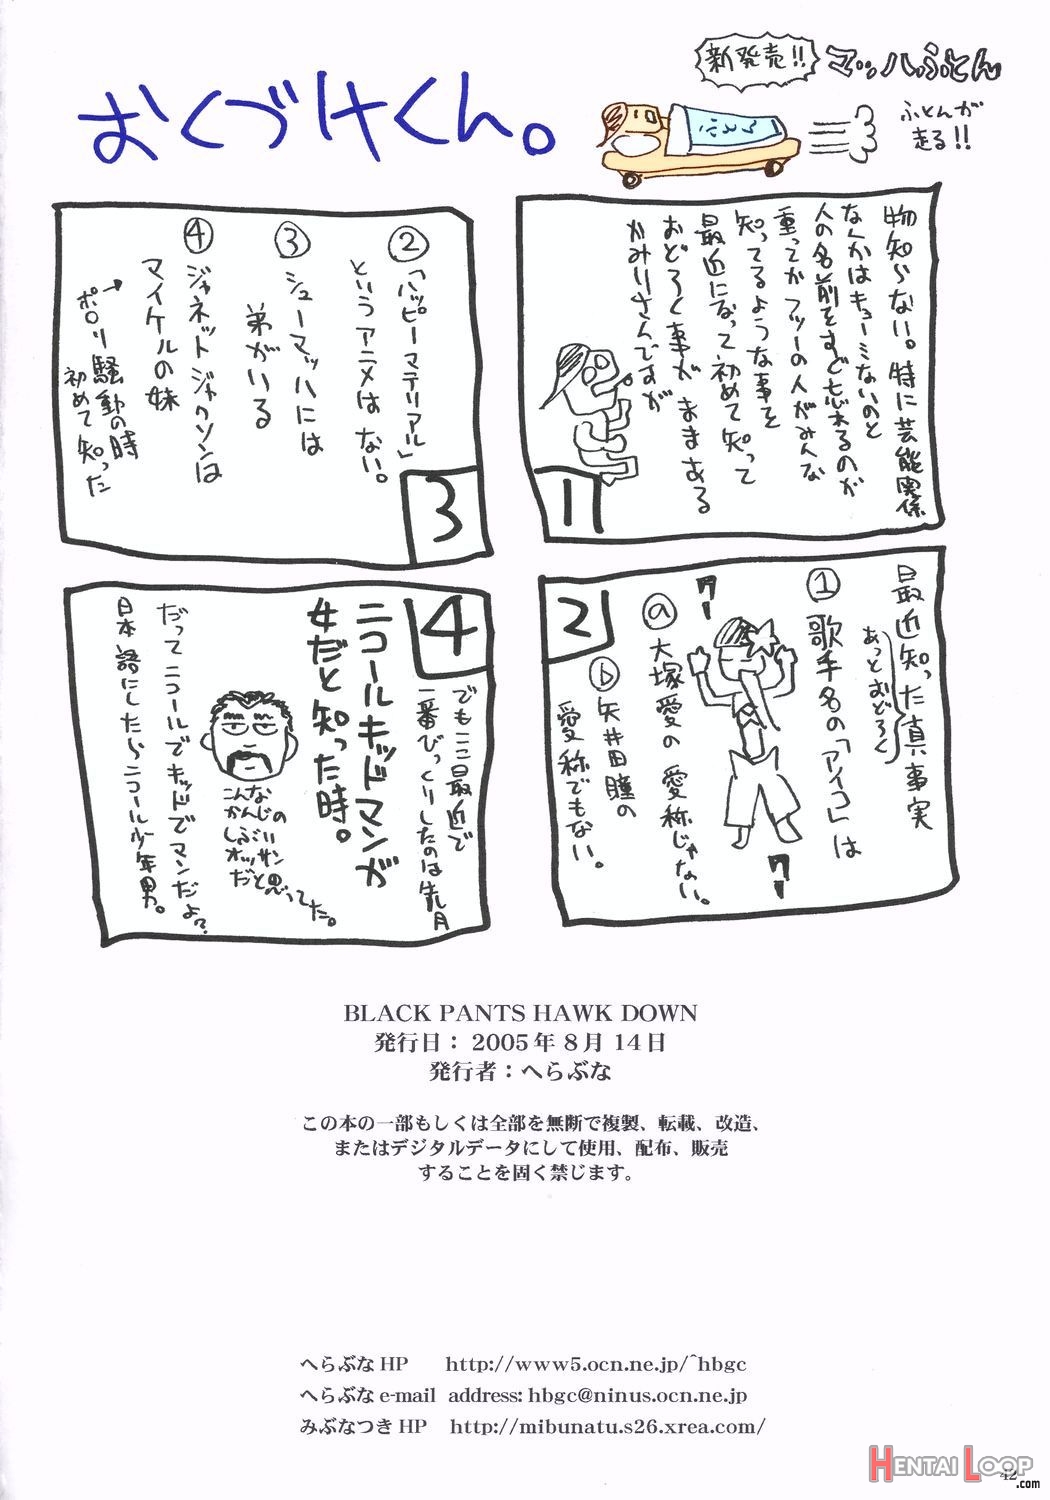 おくづけくん。
新発売!!
マッハふとん
ふとんが
走る!!
ふとん
物知らない。特に芸能関係
なんかはキョーミないのと
人の名前をすぐ忘れるのが
重ってかフツーの人がみんな
知ってるような事を
最近になって初めて知って
おどろく事がままある
かみりさんですが
1
最近知った真事実
あっとおどろく
①歌手名の「アイコ」は
クー
クー
ⓐ大塚愛の愛称じゃない。
ⓑ矢井田瞳の
愛称でもない。
2
②「ハッピーマテリアル」
というアニメはない。
③シューマッハには
弟がいる
④ジャネットジャクソンは
マイケルの妹
→ポロリ騒動の時
初めて知った
3
4
でもここ最近で
一番びっくりしたのは先月
ニコールキッドマンが
女だと知った時。
こんな
かんじの
しぶい
オッサン
だと思ってた。
だってニコールでキッドでマンだよ?
日本語にしたらニコール少年男。
BLACK PANTS HAWK DOWN
発行日：2005年8月14日
発行者：へらぶな
この本の一部もしくは全部を無断で複製、転載、改造、
またはデジタルデータにして使用、配布、販売
することを固く禁じます。
へらぶなHP http://www5.ocn.ne.jp/~hbgc
へらぶな e-mail address: hbgc@ninus.ocn.ne.jp
みぶなつきHP http://mibunatu.s26.xrea.com/
42
HENTAI LOOP
.com